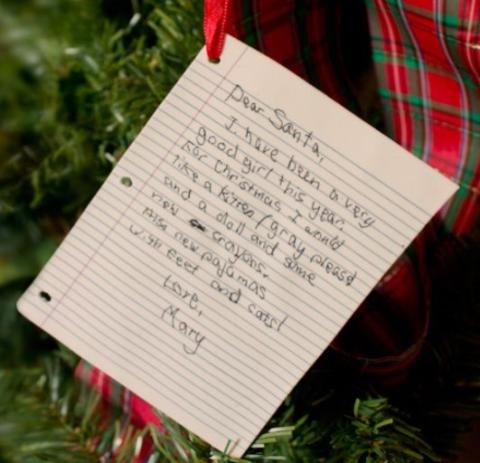 Dear Santa,
I have been a very
good girl this year.
For Christmas I would
like a kitten (gray please)
and a doll and some
new crayons.
Also new pajamas
with feet and cats!
Love,
Mary